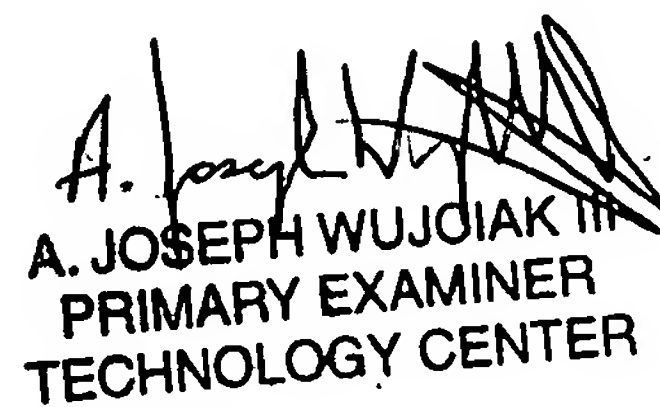 A. Joseph
A. JOSEPH WUJCIAK III
PRIMARY EXAMINER
TECHNOLOGY CENTER